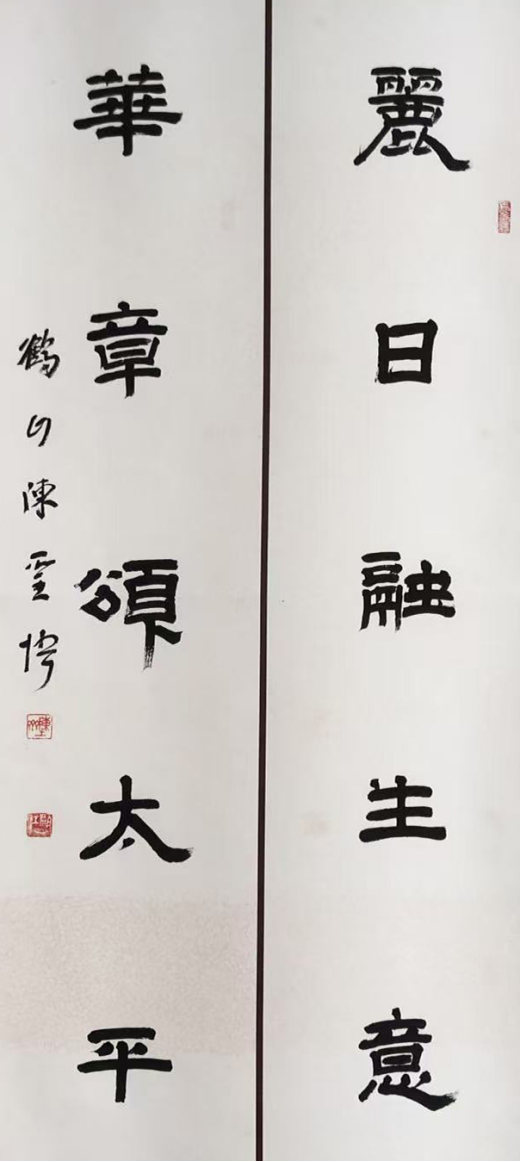 麗日融生意
華章頌太平
鶴山陳